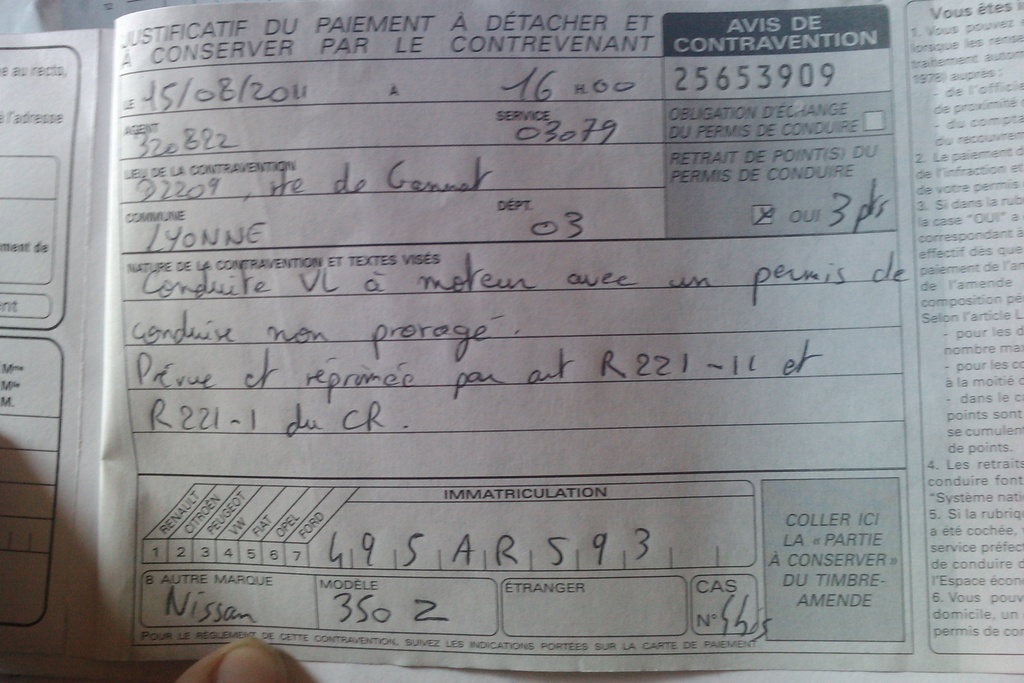 JUSTIFICATIF DU PAIEMENT À DÉTACHER ET
À CONSERVER PAR LE CONTREVENANT
AVIS DE
CONTRAVENTION
25653909
LE 15/08/2011 A 16 H.00
AGENT 320822 SERVICE 03079
LIEU DE LA CONTRAVENTION
D2209, rte de Gannat
COMMUNE LYONNE DÉPT. 03
OBLIGATION D'ÉCHANGE
DU PERMIS DE CONDUIRE
RETRAIT DE POINT(S) DU
PERMIS DE CONDUIRE
OUI 3 pts
NATURE DE LA CONTRAVENTION ET TEXTES VISÉS
Conduite VL à moteur avec un permis de
conduire non prorogé.
Prévue et réprimée par art R221-11 et
R221-1 du CR.
IMMATRICULATION
RENAULT CITROËN PEUGEOT VW FIAT OPEL FORD
1 2 3 4 5 6 7
495AR593
8 AUTRE MARQUE
Nissan
MODÈLE
350 Z
ÉTRANGER
CAS
N°
COLLER ICI
LA « PARTIE
À CONSERVER »
DU TIMBRE-
AMENDE
POUR LE RÈGLEMENT DE CETTE CONTRAVENTION, SUIVEZ LES INDICATIONS PORTÉES SUR LA CARTE DE PAIEMENT
e au recto,
l'adresse
ment de
nt
Mme
Mlle
M.
Vous êtes i
1. Vous pouvez
lorsque les rense
traitement autom
1978) auprès :
- de l'officie
de proximité
- du compta
du recouvrem
2. Le paiement d
de l'infraction et
de votre permis
3. Si dans la rub
la case "OUI" a
correspondant à
effectif dès que
paiement de l'am
de l'amende
composition pé
Selon l'article L
- pour les d
nombre max
- pour les co
à la moitié d
- dans le ca
points sont
se cumulent
de points.
4. Les retraits
conduire font
"Système nati
5. Si la rubriq
a été cochée,
service préfec
de conduire d
l'Espace écon
6. Vous pouv
domicile, un
permis de con